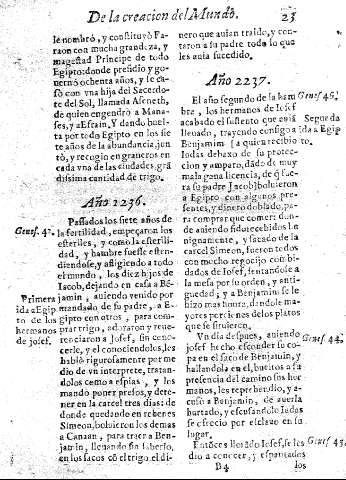 De la creacion del Mundo. 23
le nombró, y constituyò Fa-
raon con mucha grandeza, y
magestad Principe de todo
Egipto: donde presidio y go-
vernó ochenta años, y le ca-
só con vna hija del Sacerdo-
te del Sol, llamada Aseneth,
de quien engendrò a Mana-
ses, y a Efrain. Y dando buel-
ta por todo Egipto en los sie
te años de la abundancia, jun
tò, y recogio en graneros en
cada vna de las ciudades, grã
dissima cantidad de trigo.
Año 2236.
Passados los siete años de
Genes. 42. la fertilidad, empeçaron los
esteriles, y como la esterili-
dad, y hambre fuesse esten-
diendose, y afligiendo a todo
el mundo, los diez hijos de
Iacob, dejando en casa a Bē-
Primera jamin, auiendo venido por
ida a Egip mandado de su padre, a E-
to de los gipto con otros, para com-
hermanos prar trigo, adoraron y reue-
de josef. renciaron a Iosef, sin cono-
cerle, y el conociendolos, les
hablò rigurosamente por me
dio de vn interprete, tratan-
dolos como a espias, y les
mando poner presos, y dete-
ner en la carcel tres dias: de
donde quedando en rehenes
Simeon, boluieron los demas
a Canaan, para traer a Ben-
jamin, lleuando sin saberlo,
en los sacos cō el trigo, el di-
nero que auian traido, y con-
taron a su padre todo lo que
les auia sucedido.
Año 2237.
El año segundo de la ham Genes. 43.
bre, los hermanos de Iosef
acabado el sustento que auiā Segunda
lleuado, trayendo consigo a ida a Egip
Benjamin [a quien recibio
Iudas debaxo de su protec-
cion y amparo, dãdo de muy
mala gana licencia, de q̃ fue
ra su padre Iacob] boluieron
a Egipto con algunos pre-
sentes, y dinero doblado, pa-
ra comprar que comer: don-
de auiendo sido recebidos be
nignamente, y sacado de la
carcel Simeon, fueron todos
con mucho regocijo combi-
dados de Iosef, sentandose a
la mesa por su orden, y anti-
guedad; y a Benjamin se le
hizo mas honra, dandole ma-
yores porciones de los platos
que se siruieron.
Vn dia despues, auiendo Genes. 44.
josef hecho esconder su co-
pa en el saco de Benjamin, y
hallandola en el, bueltos a su
presencia del camino sus her-
manos, les reprehendio, y a-
cusò a Benjamin, de auerla
hurtado, y escusandolo Iudas
se ofrecio por esclauo en su
lugar.
Entõces llorãdo Iosef, se les Genes. 45.
dio a conocer, y espantados
B4 los